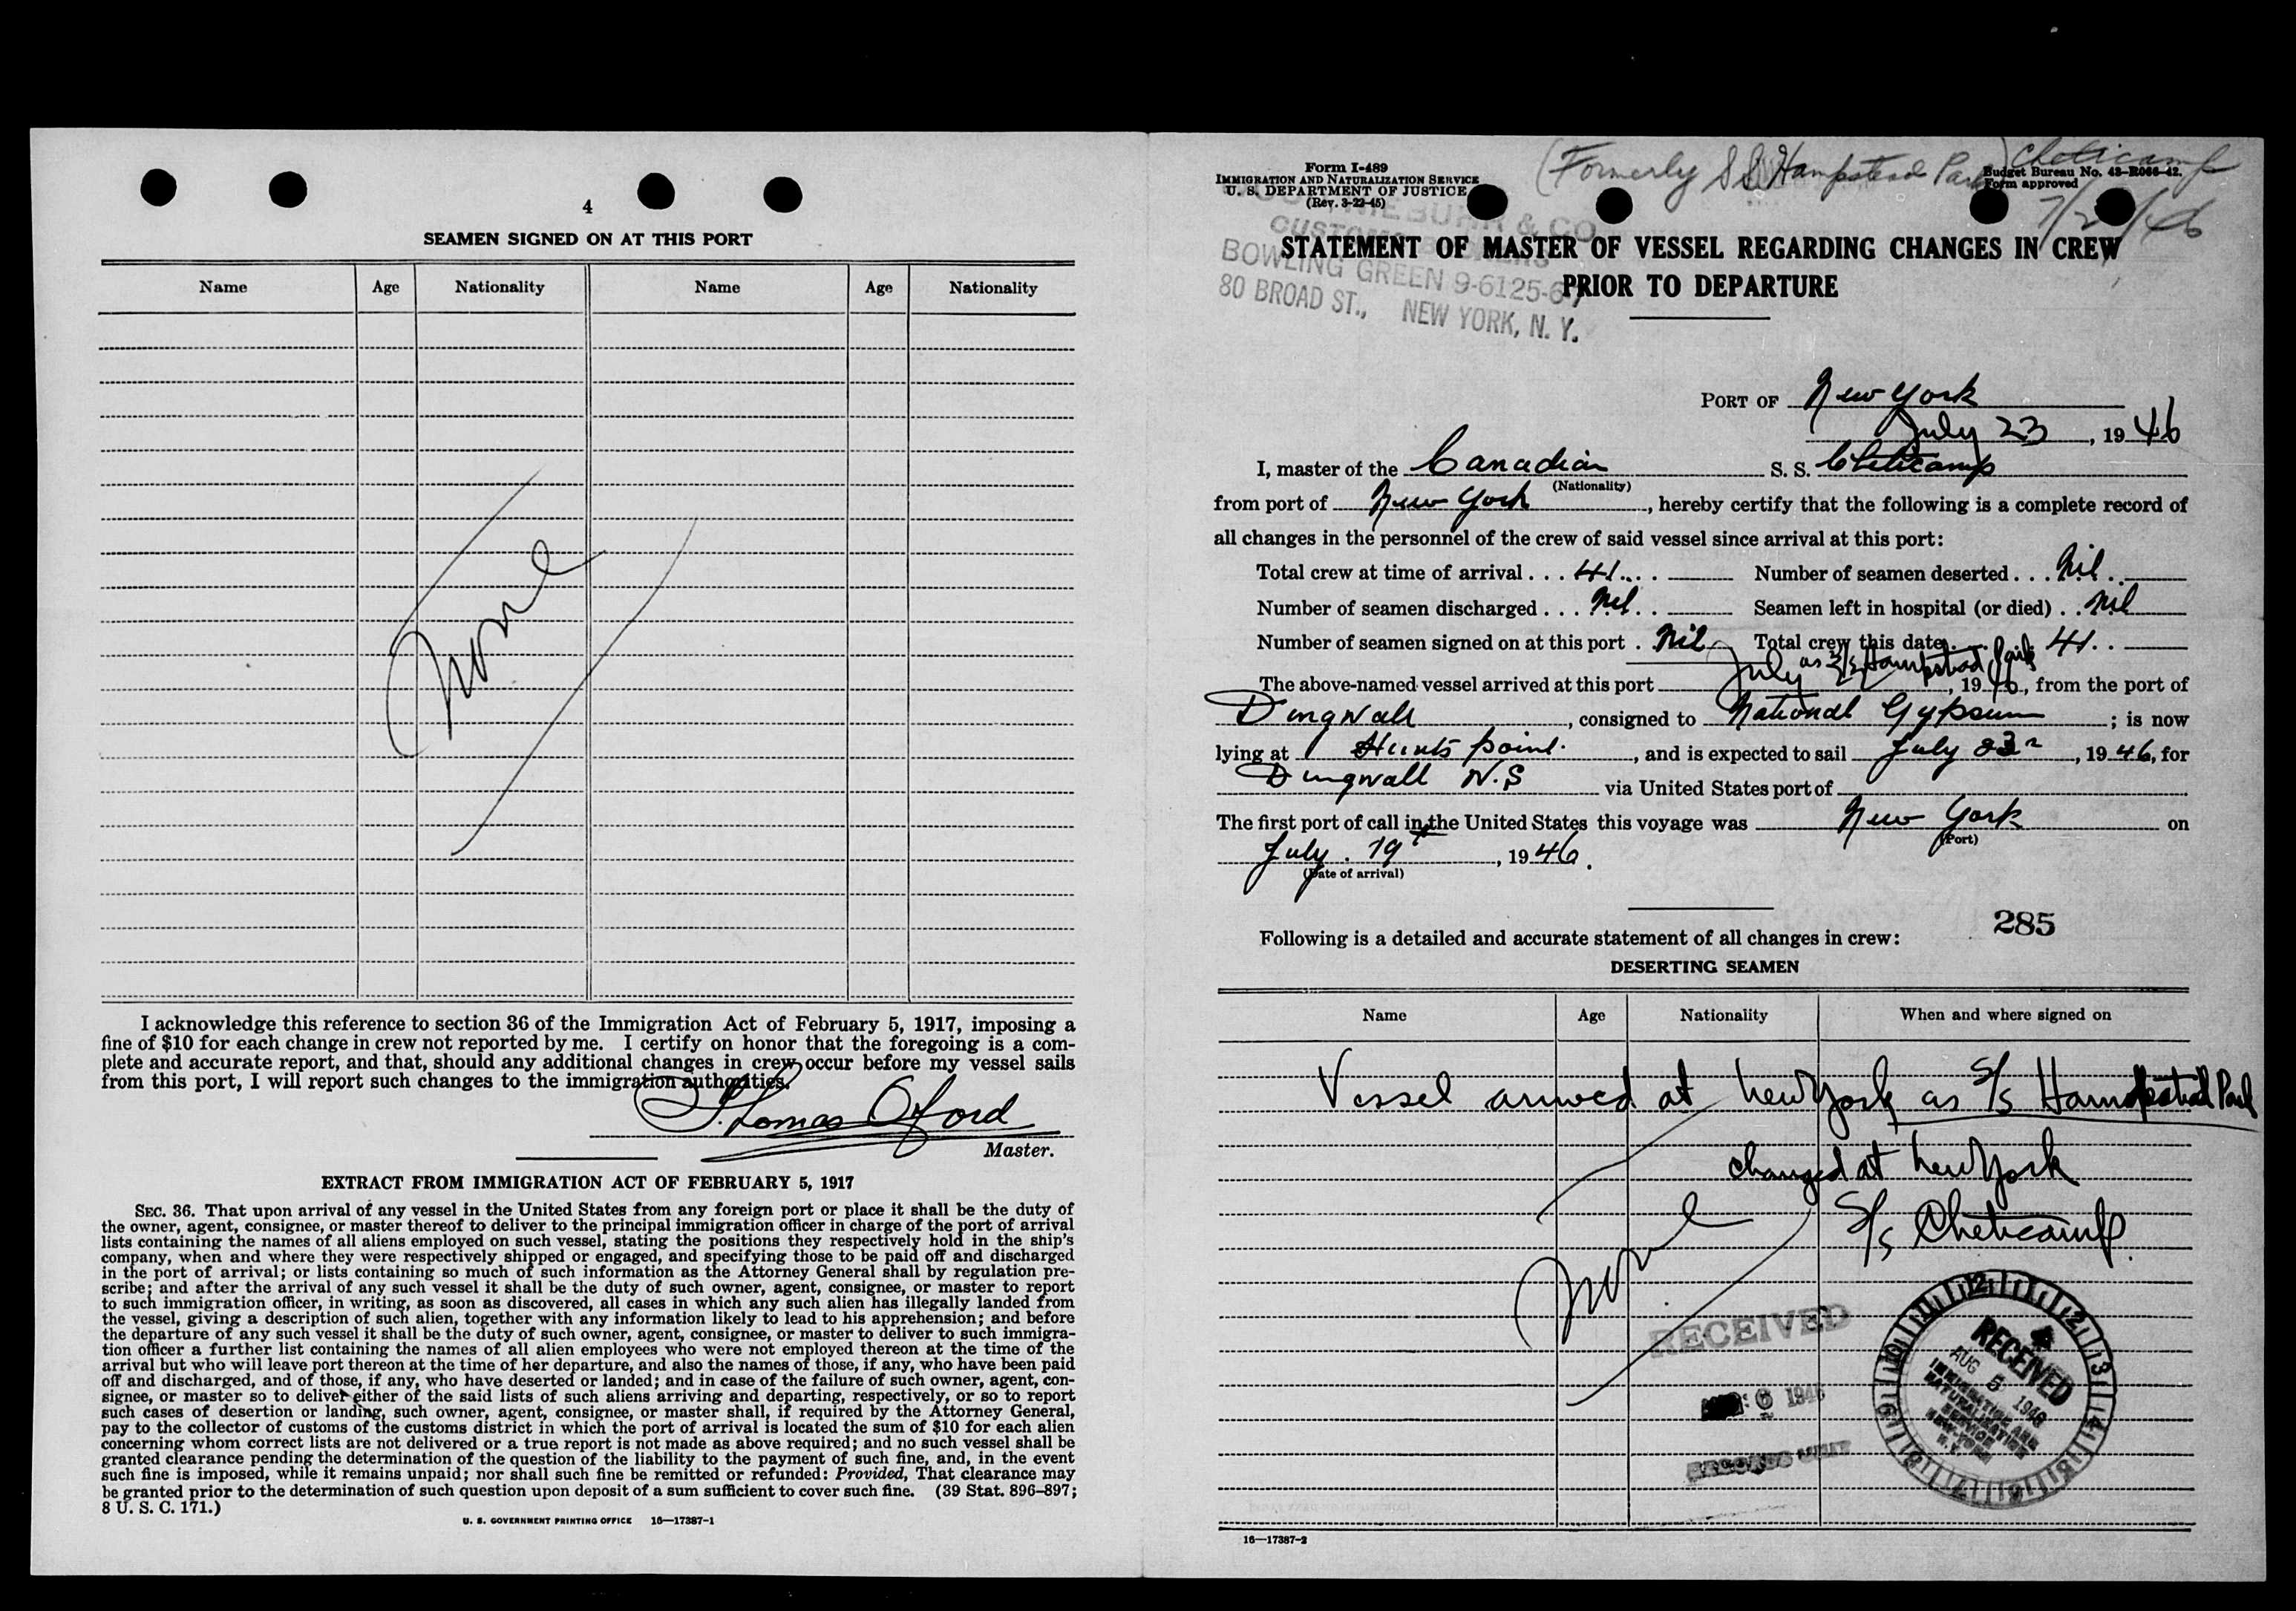 4
SEAMEN SIGNED ON AT THIS PORT
Name Age Nationality Name Age Nationality
None
I acknowledge this reference to section 36 of the Immigration Act of February 5, 1917, imposing a
fine of $10 for each change in crew not reported by me. I certify on honor that the foregoing is a com-
plete and accurate report, and that, should any additional changes in crew occur before my vessel sails
from this port, I will report such changes to the immigration authorities.
Thomas Oxford
Master.
EXTRACT FROM IMMIGRATION ACT OF FEBRUARY 5, 1917
SEC. 36. That upon arrival of any vessel in the United States from any foreign port or place it shall be the duty of
the owner, agent, consignee, or master thereof to deliver to the principal immigration officer in charge of the port of arrival
lists containing the names of all aliens employed on such vessel, stating the positions they respectively hold in the ship's
company, when and where they were respectively shipped or engaged, and specifying those to be paid off and discharged
in the port of arrival; or lists containing so much of such information as the Attorney General shall by regulation pre-
scribe; and after the arrival of any such vessel it shall be the duty of such owner, agent, consignee, or master to report
to such immigration officer, in writing, as soon as discovered, all cases in which any such alien has illegally landed from
the vessel, giving a description of such alien, together with any information likely to lead to his apprehension; and before
the departure of any such vessel it shall be the duty of such owner, agent, consignee, or master to deliver to such immigra-
tion officer a further list containing the names of all alien employees who were not employed thereon at the time of the
arrival but who will leave port thereon at the time of her departure, and also the names of those, if any, who have been paid
off and discharged, and of those, if any, who have deserted or landed; and in case of the failure of such owner, agent, con-
signee, or master so to deliver either of the said lists of such aliens arriving and departing, respectively, or so to report
such cases of desertion or landing, such owner, agent, consignee, or master shall, if required by the Attorney General,
pay to the collector of customs of the customs district in which the port of arrival is located the sum of $10 for each alien
concerning whom correct lists are not delivered or a true report is not made as above required; and no such vessel shall be
granted clearance pending the determination of the question of the liability to the payment of such fine, and, in the event
such fine is imposed, while it remains unpaid; nor shall such fine be remitted or refunded: Provided, That clearance may
be granted prior to the determination of such question upon deposit of a sum sufficient to cover such fine. (39 Stat. 896-897;
8 U. S. C. 171.)
U. S. GOVERNMENT PRINTING OFFICE 16—17387-1
Form I-489
IMMIGRATION AND NATURALIZATION SERVICE
U. S. DEPARTMENT OF JUSTICE
(Rev. 3-22-45)
(Formerly SS Hampstead Park) Cheticamp
Budget Bureau No. 43-R066-42.
Form approved
7/2/46
& CO
CUSTOMS
BOWLING GREEN 9-6125-6-7
80 BROAD ST., NEW YORK, N. Y.
STATEMENT OF MASTER OF VESSEL REGARDING CHANGES IN CREW
PRIOR TO DEPARTURE
PORT OF New York
July 23, 1946
I, master of the Canadian S. S. Cheticamp
(Nationality)
from port of New York, hereby certify that the following is a complete record of
all changes in the personnel of the crew of said vessel since arrival at this port:
Total crew at time of arrival . . . 41 . . . Number of seamen deserted . . . Nil
Number of seamen discharged . . . Nil . . Seamen left in hospital (or died) . . Nil
Number of seamen signed on at this port . Nil Total crew this date . . . 41 . .
as S/S Hampstead Park
The above-named vessel arrived at this port July, 1946, from the port of
Dingwall, consigned to National Gypsum; is now
lying at Hunts point, and is expected to sail July 23, 1946, for
Dingwall N.S via United States port of
The first port of call in the United States this voyage was New York on
(Port)
July 19th, 1946.
(Date of arrival)
285
Following is a detailed and accurate statement of all changes in crew:
DESERTING SEAMEN
Name Age Nationality When and where signed on
Vessel arrived at New York as S/S Hampstead Park
changed at New York
S/S Cheticamp.
None
RECEIVED
6 1946
RECORDS UNIT
RECEIVED
AUG 5 1946
IMMIGRATION AND
NATURALIZATION
SERVICE
NEW YORK
N.Y.
16—17387-2